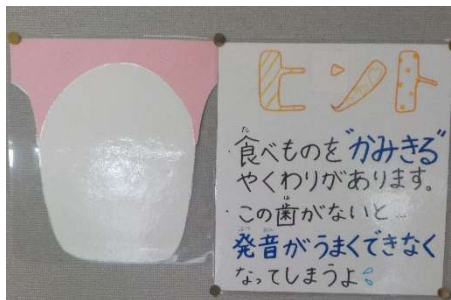 ヒント
・食べものを"かみきる"
やくわりがあります。
・この歯がないと…
発音がうまくできなく
なってしまうよ